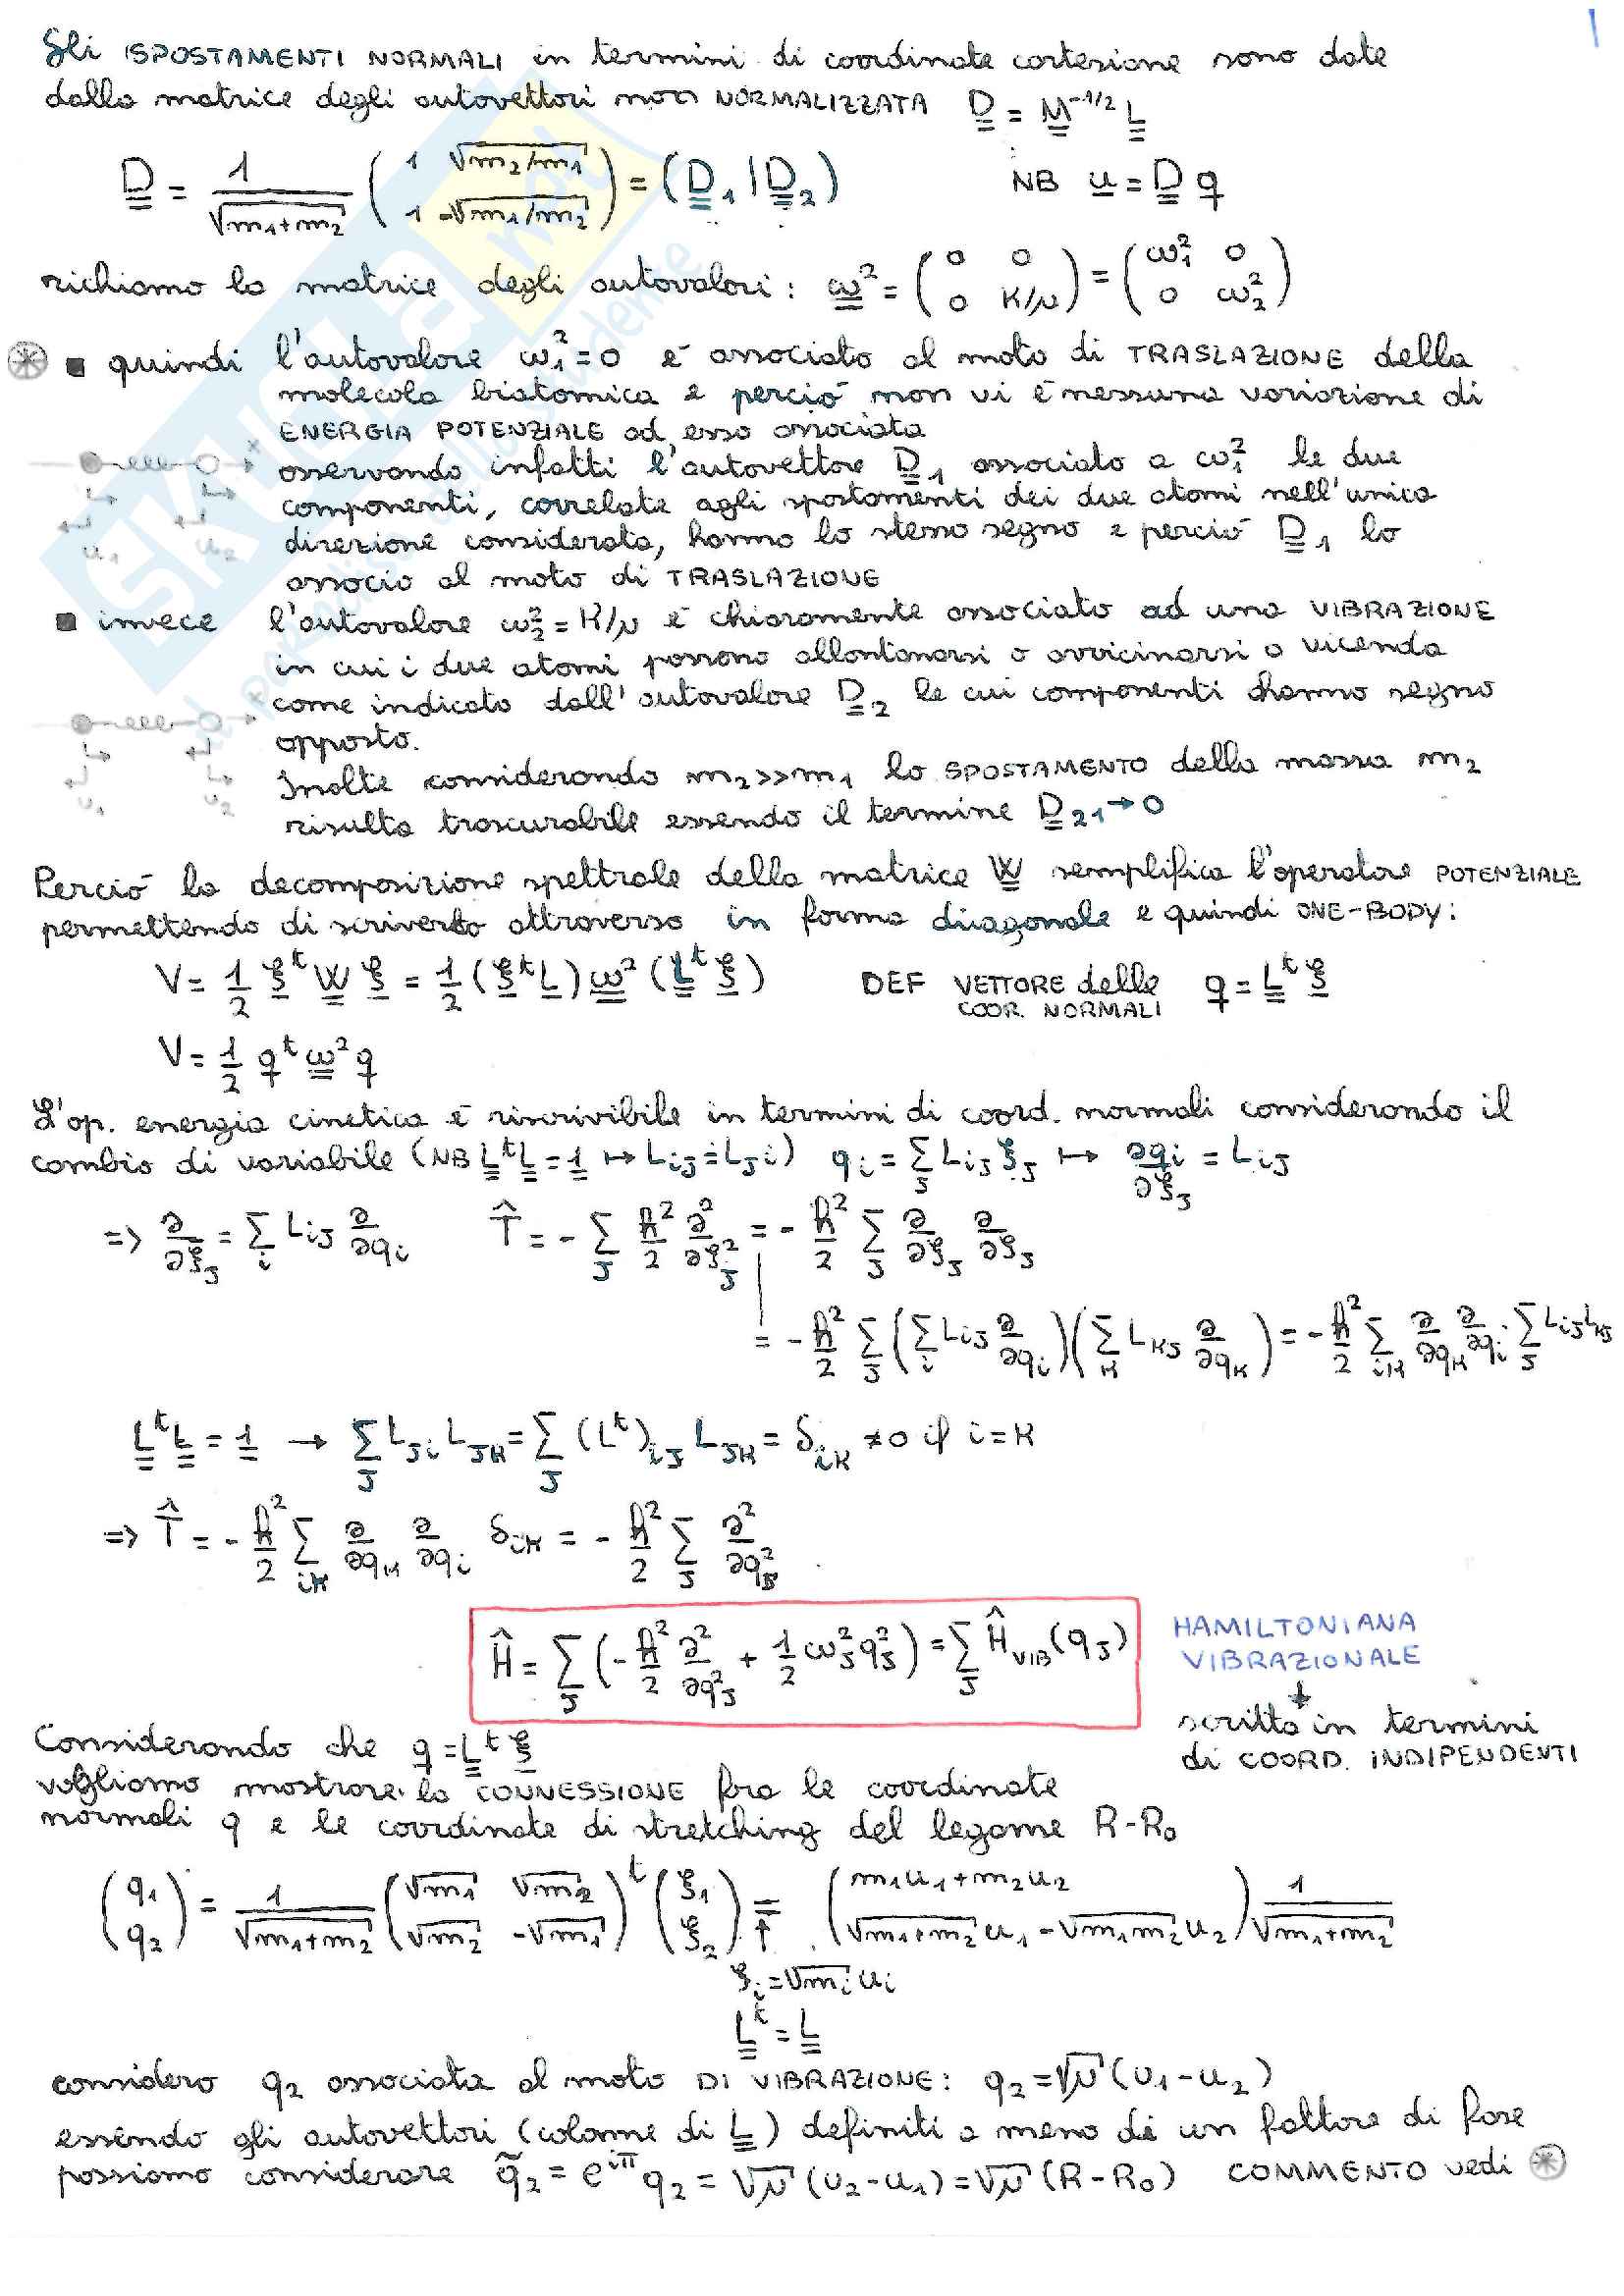 1
Gli ISPOSTAMENTI NORMALI in termini di coordinate cartesiane sono date
dalla matrice degli autovettori non NORMALIZZATA D = M^-1/2 L
D = 1/√(m1+m2) (1 √(m2/m1) ; 1 -√(m1/m2)) = (D1 | D2) NB u = D q
richiamo la matrice degli autovalori: ω² = (0 0 ; 0 K/μ) = (ω1² 0 ; 0 ω2²)
■ quindi l'autovalore ω1² = 0 è associato al moto di TRASLAZIONE della
molecola biatomica e perciò non vi è nessuna variazione di
ENERGIA POTENZIALE ad esso associata
x
osservando infatti l'autovettore D1 associato a ω1² le due
componenti, correlate agli spostamenti dei due atomi nell'unica
u1 u2
direzione considerata, hanno lo stesso segno e perciò D1 lo
associo al moto di TRASLAZIONE
■ invece l'autovalore ω2² = K/μ è chiaramente associato ad una VIBRAZIONE
in cui i due atomi possono allontanarsi o avvicinarsi a vicenda
x
come indicato dall'autovalore D2 le cui componenti hanno segno
opposto.
u1 u2
Inolte considerando m2>>m1 lo SPOSTAMENTO della massa m2
risulta trascurabile essendo il termine D21→0
Perciò la decomposizione spettrale della matrice W semplifica l'operatore POTENZIALE
permettendo di scriverlo attraverso in forma diagonale e quindi ONE-BODY:
V = 1/2 ξ^t W ξ = 1/2 (ξ^t L) ω² (L^t ξ) DEF VETTORE delle COOR. NORMALI q = L^t ξ
V = 1/2 q^t ω² q
L'op. energia cinetica è riscrivibile in termini di coord. normali considerando il
cambio di variabile (NB L^t L = 1 ↦ Lij = Lji) qi = Σj Lij ξj ↦ ∂qi/∂ξj = Lij
=> ∂/∂ξj = Σi Lij ∂/∂qi T̂ = - Σj ħ²/2 ∂²/∂ξj² = - ħ²/2 Σj ∂/∂ξj ∂/∂ξj
= - ħ²/2 Σj (Σi Lij ∂/∂qi)(Σk Lkj ∂/∂qk) = - ħ²/2 Σik ∂/∂qk ∂/∂qi · Σj Lij Lkj
L^t L = 1 → Σj Lji Ljk = Σj (L^t)ij Ljk = δik ≠0 if i=k
=> T̂ = - ħ²/2 Σik ∂/∂qk ∂/∂qi δik = - ħ²/2 Σj ∂²/∂qj²
Ĥ = Σj (- ħ²/2 ∂²/∂qj² + 1/2 ωj² qj²) = Σj ĤVIB (qj)
HAMILTONIANA
VIBRAZIONALE
↓
scritta in termini
di COORD. INDIPENDENTI
Considerando che q = L^t ξ
vogliamo mostrare la CONNESSIONE fra le coordinate
normali q e le coordinate di stretching del legame R-R0
(q1 ; q2) = 1/√(m1+m2) (√m1 √m2 ; √m2 -√m1)^t (ξ1 ; ξ2) = (m1u1+m2u2 ; √(m1+m2) u1 - √(m1m2) u2) 1/√(m1+m2)
↑
ξi = √mi ui
L^t = L
considero q2 associata al moto DI VIBRAZIONE: q2 = √μ (u1-u2)
essendo gli autovettori (colonne di L) definiti a meno di un fattore di fase
possiamo considerare q̃2 = e^iπ q2 = √μ (u2-u1) = √μ (R-R0) COMMENTO vedi ⊛